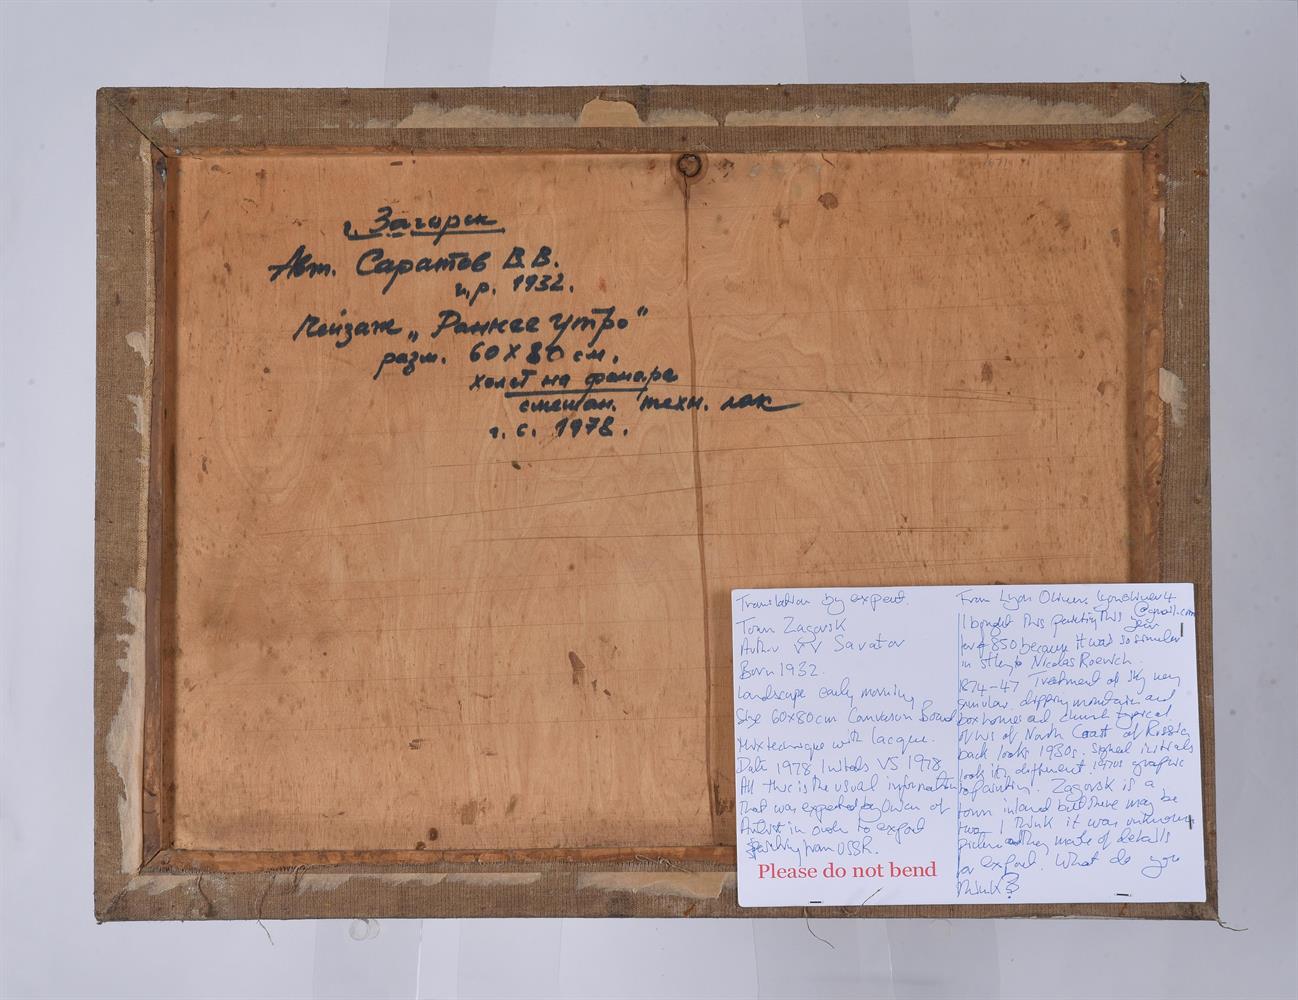 г. Загорск
Авт. Саратов В.В.
г.р. 1932.
Пейзаж „Раннее утро"
разм. 60 х 80 см.
холст на фанере
смешан. техн. лак
г. с. 1978.
Translation by expert.
Town Zagorsk
Author VV Saratov
Born 1932.
Landscape early morning
Size 60x80cm Canvas on Board
Mix technique with lacquer.
Date 1978 Initials VS 1978
All this is the usual information
that was expected by Owner of
Artist in order to export
painting from USSR.
Please do not bend
From Lyon Oliver
@gmail.com
I bought this painting this year
for £850 because it was so similar
in style to Nicolas Roerich.
1874-47 Treatment of sky very
similar. mountain and
box homes and church typical
of North Coast of Russia
back looks 1930s. signed initials
look different. 1970s graphic
to painting. Zagorsk is a
town inland but there may be
two I think it was unknown
picture and they made of details
for export. What do you
think?